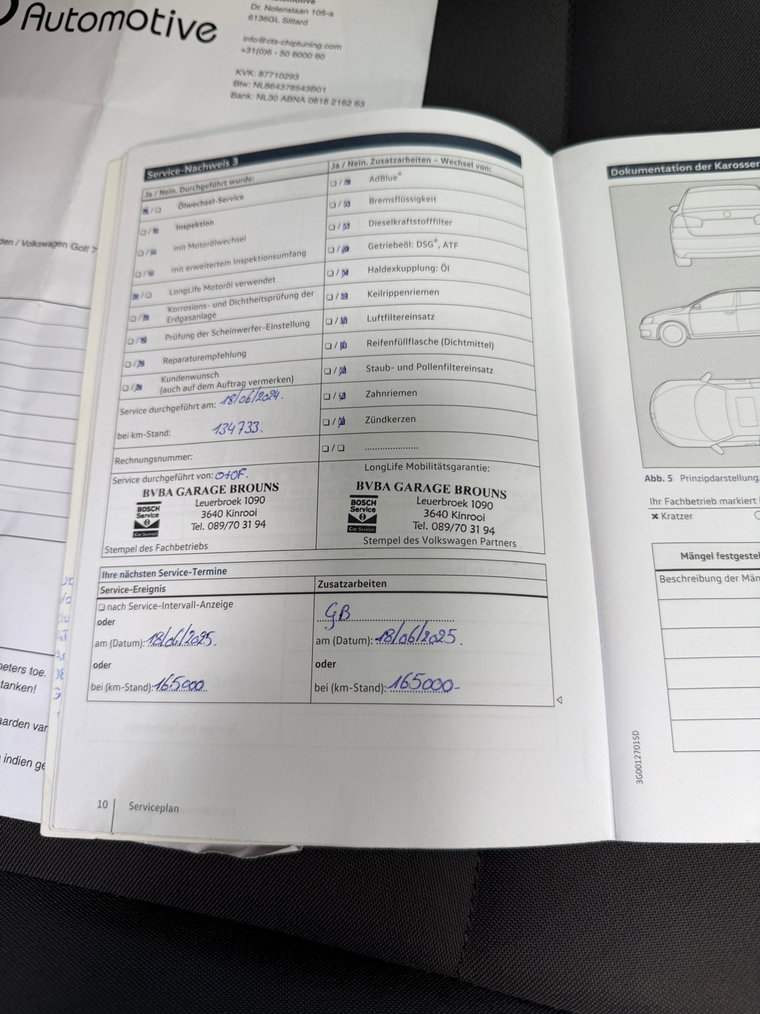 Automotive
Dr. Nolenslaan 105-a
6136GL Sittard
info@cts-chiptuning.com
+31(0)6 - 50 6000 60
KVK: 87710293
Btw: NL864378543B01
Bank: NL30 ABNA 0818 2162 63
den / Volkswagen Golf 7
Service-Nachweis 3
Ja / Nein. Durchgeführt wurde:
Ölwechsel-Service
Inspektion
mit Motorölwechsel
mit erweitertem Inspektionsumfang
LongLife Motoröl verwendet
Korrosions- und Dichtheitsprüfung der
Erdgasanlage
Prüfung der Scheinwerfer-Einstellung
Reparaturempfehlung
Kundenwunsch
(auch auf dem Auftrag vermerken)
Service durchgeführt am: 18/06/2024.
bei km-Stand: 134733.
Rechnungsnummer:
Service durchgeführt von: O+OF.
BVBA GARAGE BROUNS
BOSCH
Service
Car Service
Leuerbroek 1090
3640 Kinrooi
Tel. 089/70 31 94
Stempel des Fachbetriebs
Ja / Nein. Zusatzarbeiten – Wechsel von:
AdBlue®
Bremsflüssigkeit
Dieselkraftstofffilter
Getriebeöl: DSG®, ATF
Haldexkupplung: Öl
Keilrippenriemen
Luftfiltereinsatz
Reifenfüllflasche (Dichtmittel)
Staub- und Pollenfiltereinsatz
Zahnriemen
Zündkerzen
LongLife Mobilitätsgarantie:
BVBA GARAGE BROUNS
BOSCH
Service
Car Service
Leuerbroek 1090
3640 Kinrooi
Tel. 089/70 31 94
Stempel des Volkswagen Partners
Ihre nächsten Service-Termine
Service-Ereignis
nach Service-Intervall-Anzeige
oder
am (Datum): 18/06/2025.
oder
bei (km-Stand): 165000
Zusatzarbeiten
GB
am (Datum): 18/06/2025.
oder
bei (km-Stand): 165000-
10 Serviceplan
Dokumentation der Karosser
Abb. 5 Prinzipdarstellung.
Ihr Fachbetrieb markiert
✖ Kratzer
Mängel festgestel
Beschreibung der Män
3G0012701SD
neters toe.
tanken!
aarden var
indien ge